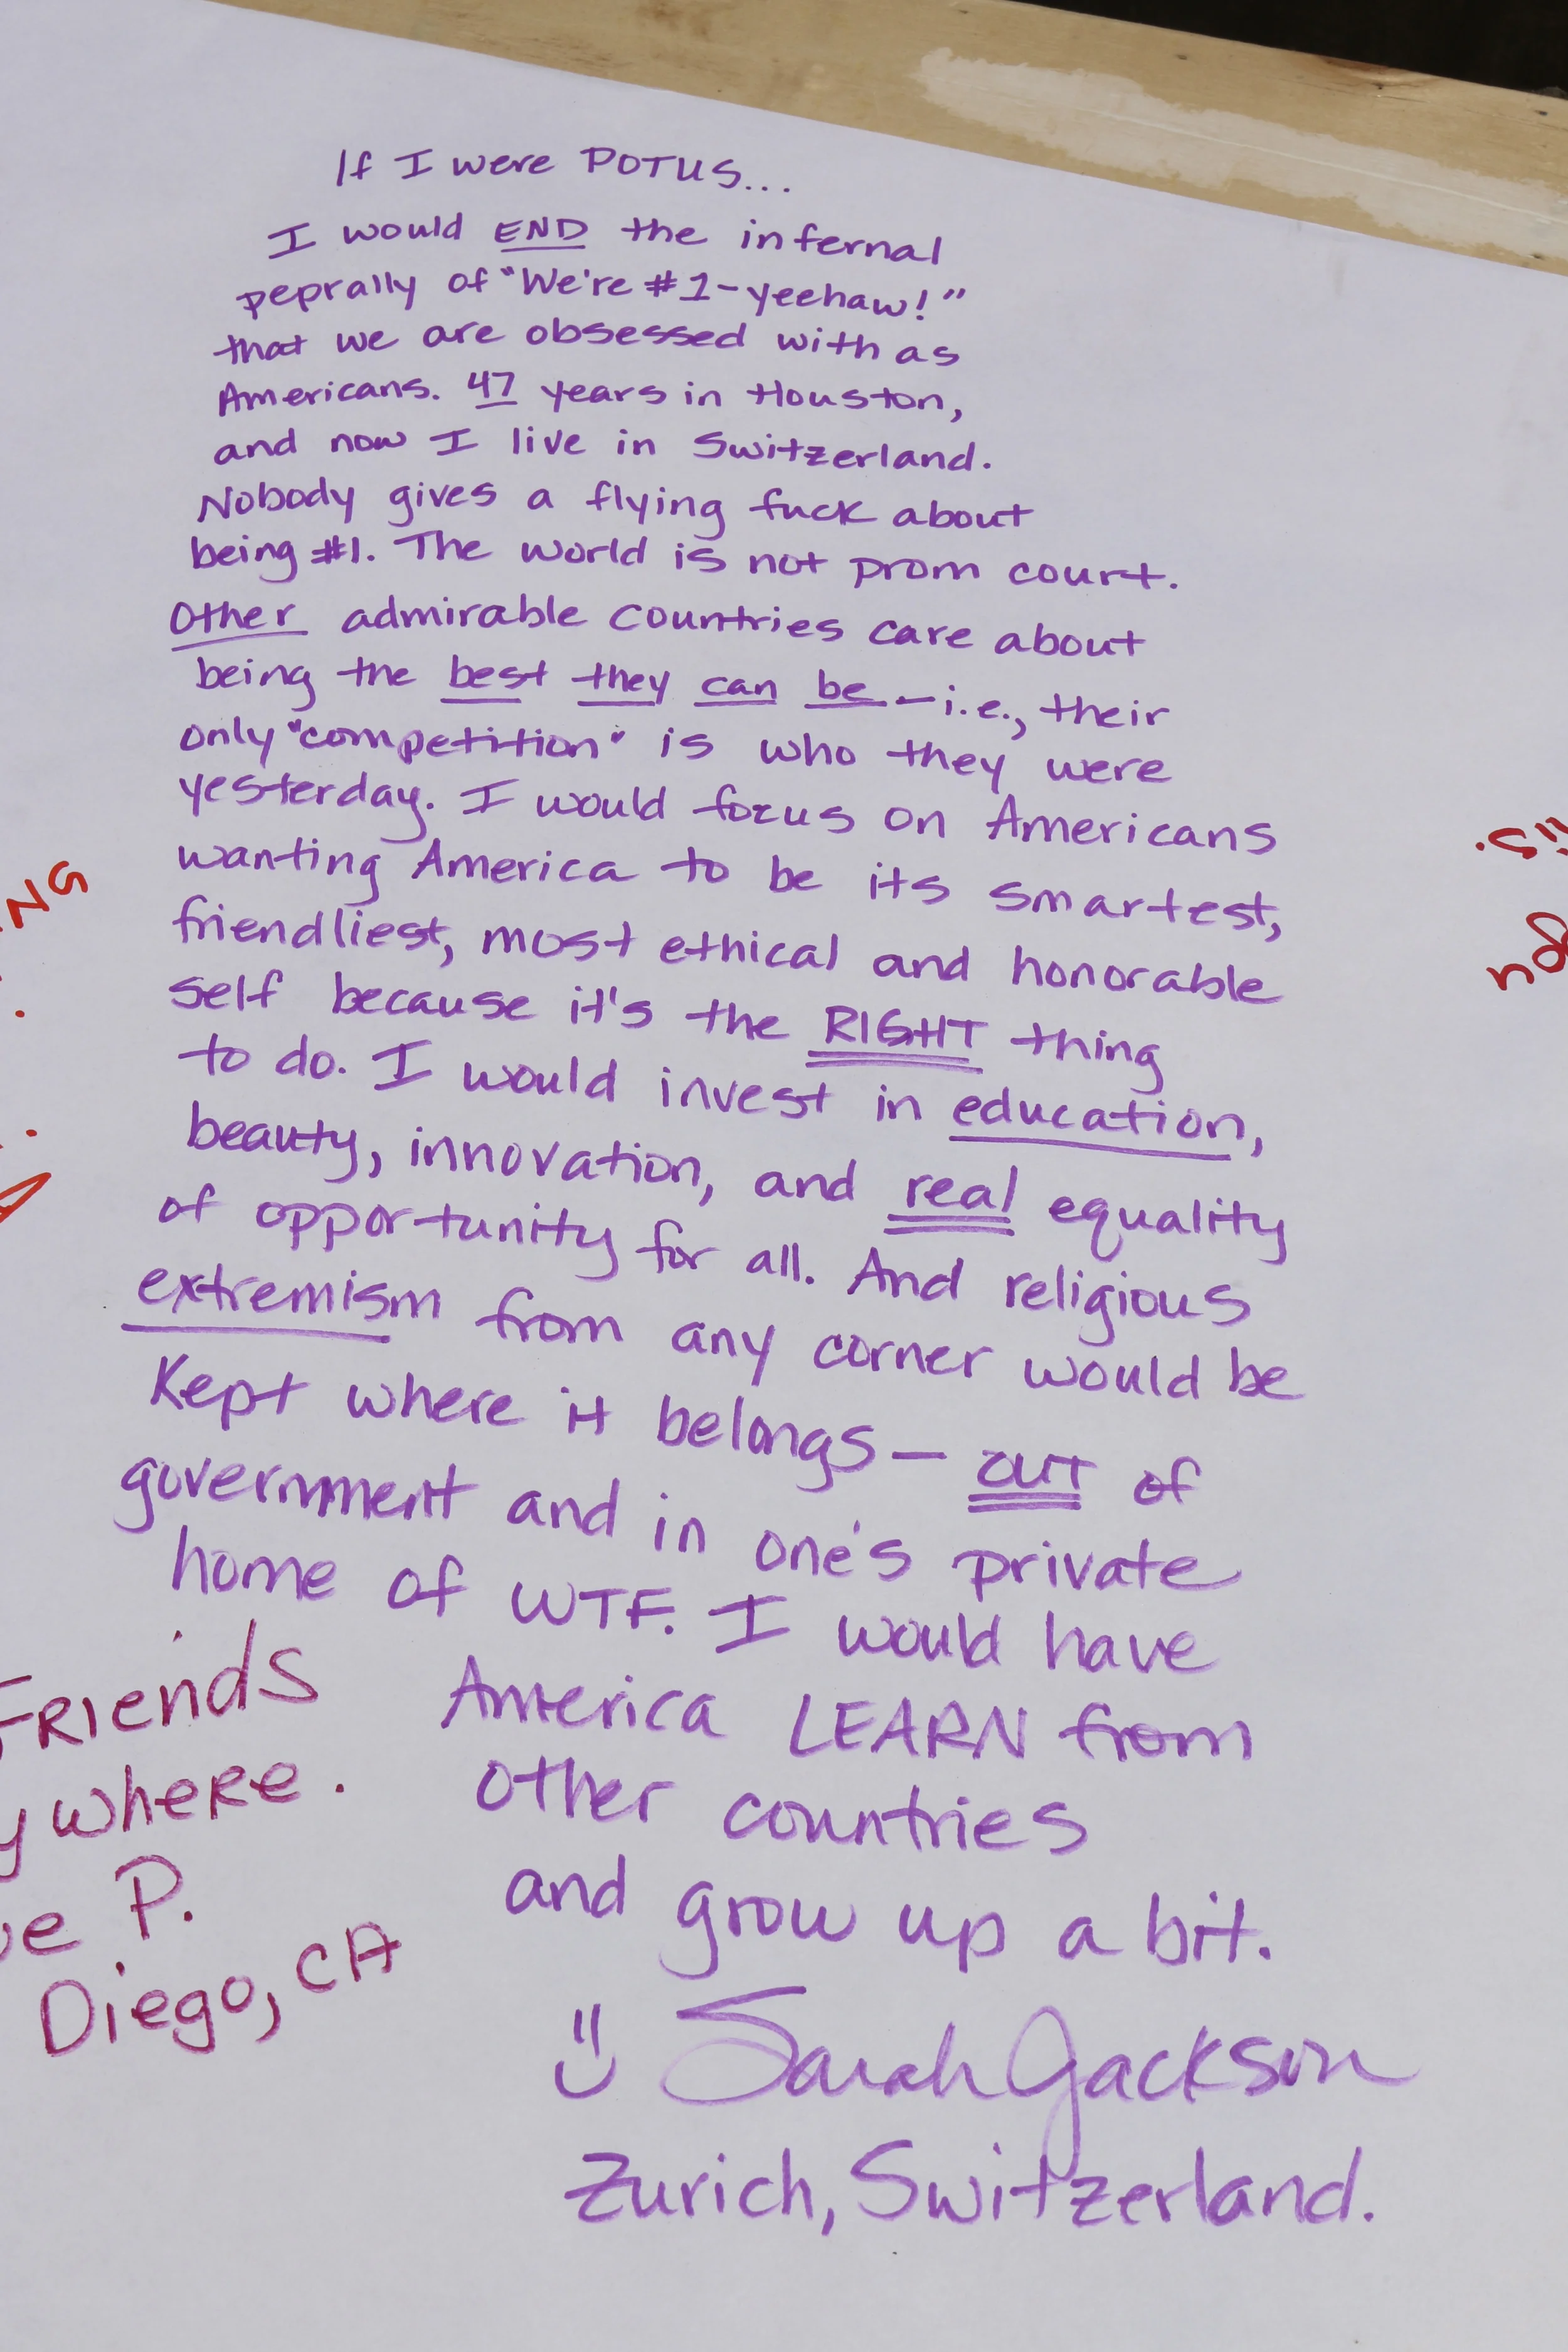 If I were POTUS...
I would END the infernal
peprally of "We're #1-yeehaw!"
that we are obsessed with as
Americans. 47 years in Houston,
and now I live in Switzerland.
Nobody gives a flying fuck about
being #1. The world is not prom court.
Other admirable countries care about
being the best they can be - i.e., their
only "competition" is who they were
yesterday. I would focus on Americans
wanting America to be its smartest,
friendliest, most ethical and honorable
self because it's the RIGHT thing
to do. I would invest in education,
beauty, innovation, and real equality
of opportunity for all. And religious
extremism from any corner would be
Kept where it belongs - OUT of
government and in one's private
home of WTF. I would have
America LEARN from
other countries
and grow up a bit.
Sarah Jackson
Zurich, Switzerland.
FRiends
where.
P.
Diego, CA